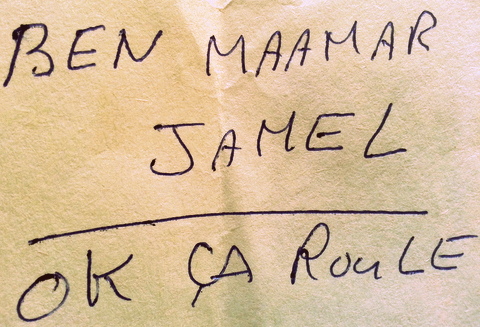 BEN MAAMAR
JAMEL
OK ÇA ROULE